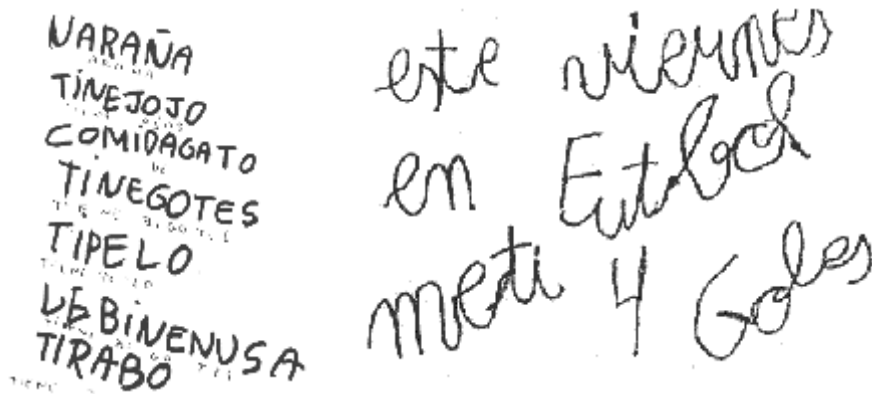 NARAÑA
TINEJOJO
COMIDAGATO
TINEGOTES
TIPELO
LE BINENUSA
TIRABO
este viernes
en Eutbol
meti 4 Goles